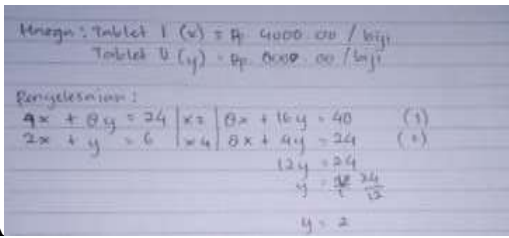 Harga : Tablet I (x) = Rp. 4000.00 / biji
Tablet II (y) = Rp. 8000.00 / biji
Penyelesaian :
4x + 8y = 24 | x2 | 8x + 16y = 48 (1)
2x + y = 6 | x4 | 8x + 4y = 24 (2)
12y = 24
y = 24/12
y = 2